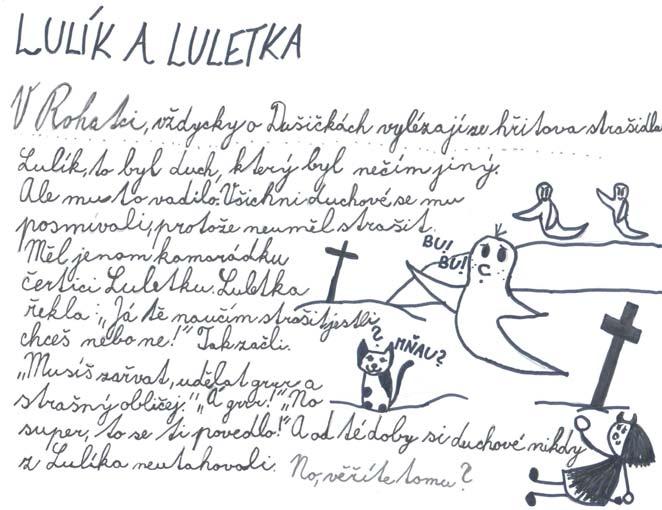 LULÍK A LULETKA
V Rohatci, vždycky o Dušičkách vylézají ze hřitova strašidla
Lulík, to byl duch, který byl nečím jiný.
Ale mu to vadilo. Všichni duchové se mu
posmívali, protože neuměl strašit.
Měl jenom kamarádku
čertici Luletku. Luletka
řekla: „Já tě naučím strašit, jestli
chceš nebo ne!" Tak začli.
„Musíš zařvat, udělat grrr a
strašný obličej." „A grrr!" „No
super, to se ti povedlo!" A od té doby si duchové nikdy
z Lulíka neutahovali. No, věříte tomu?
BU!
BU!
?
MŇAU?